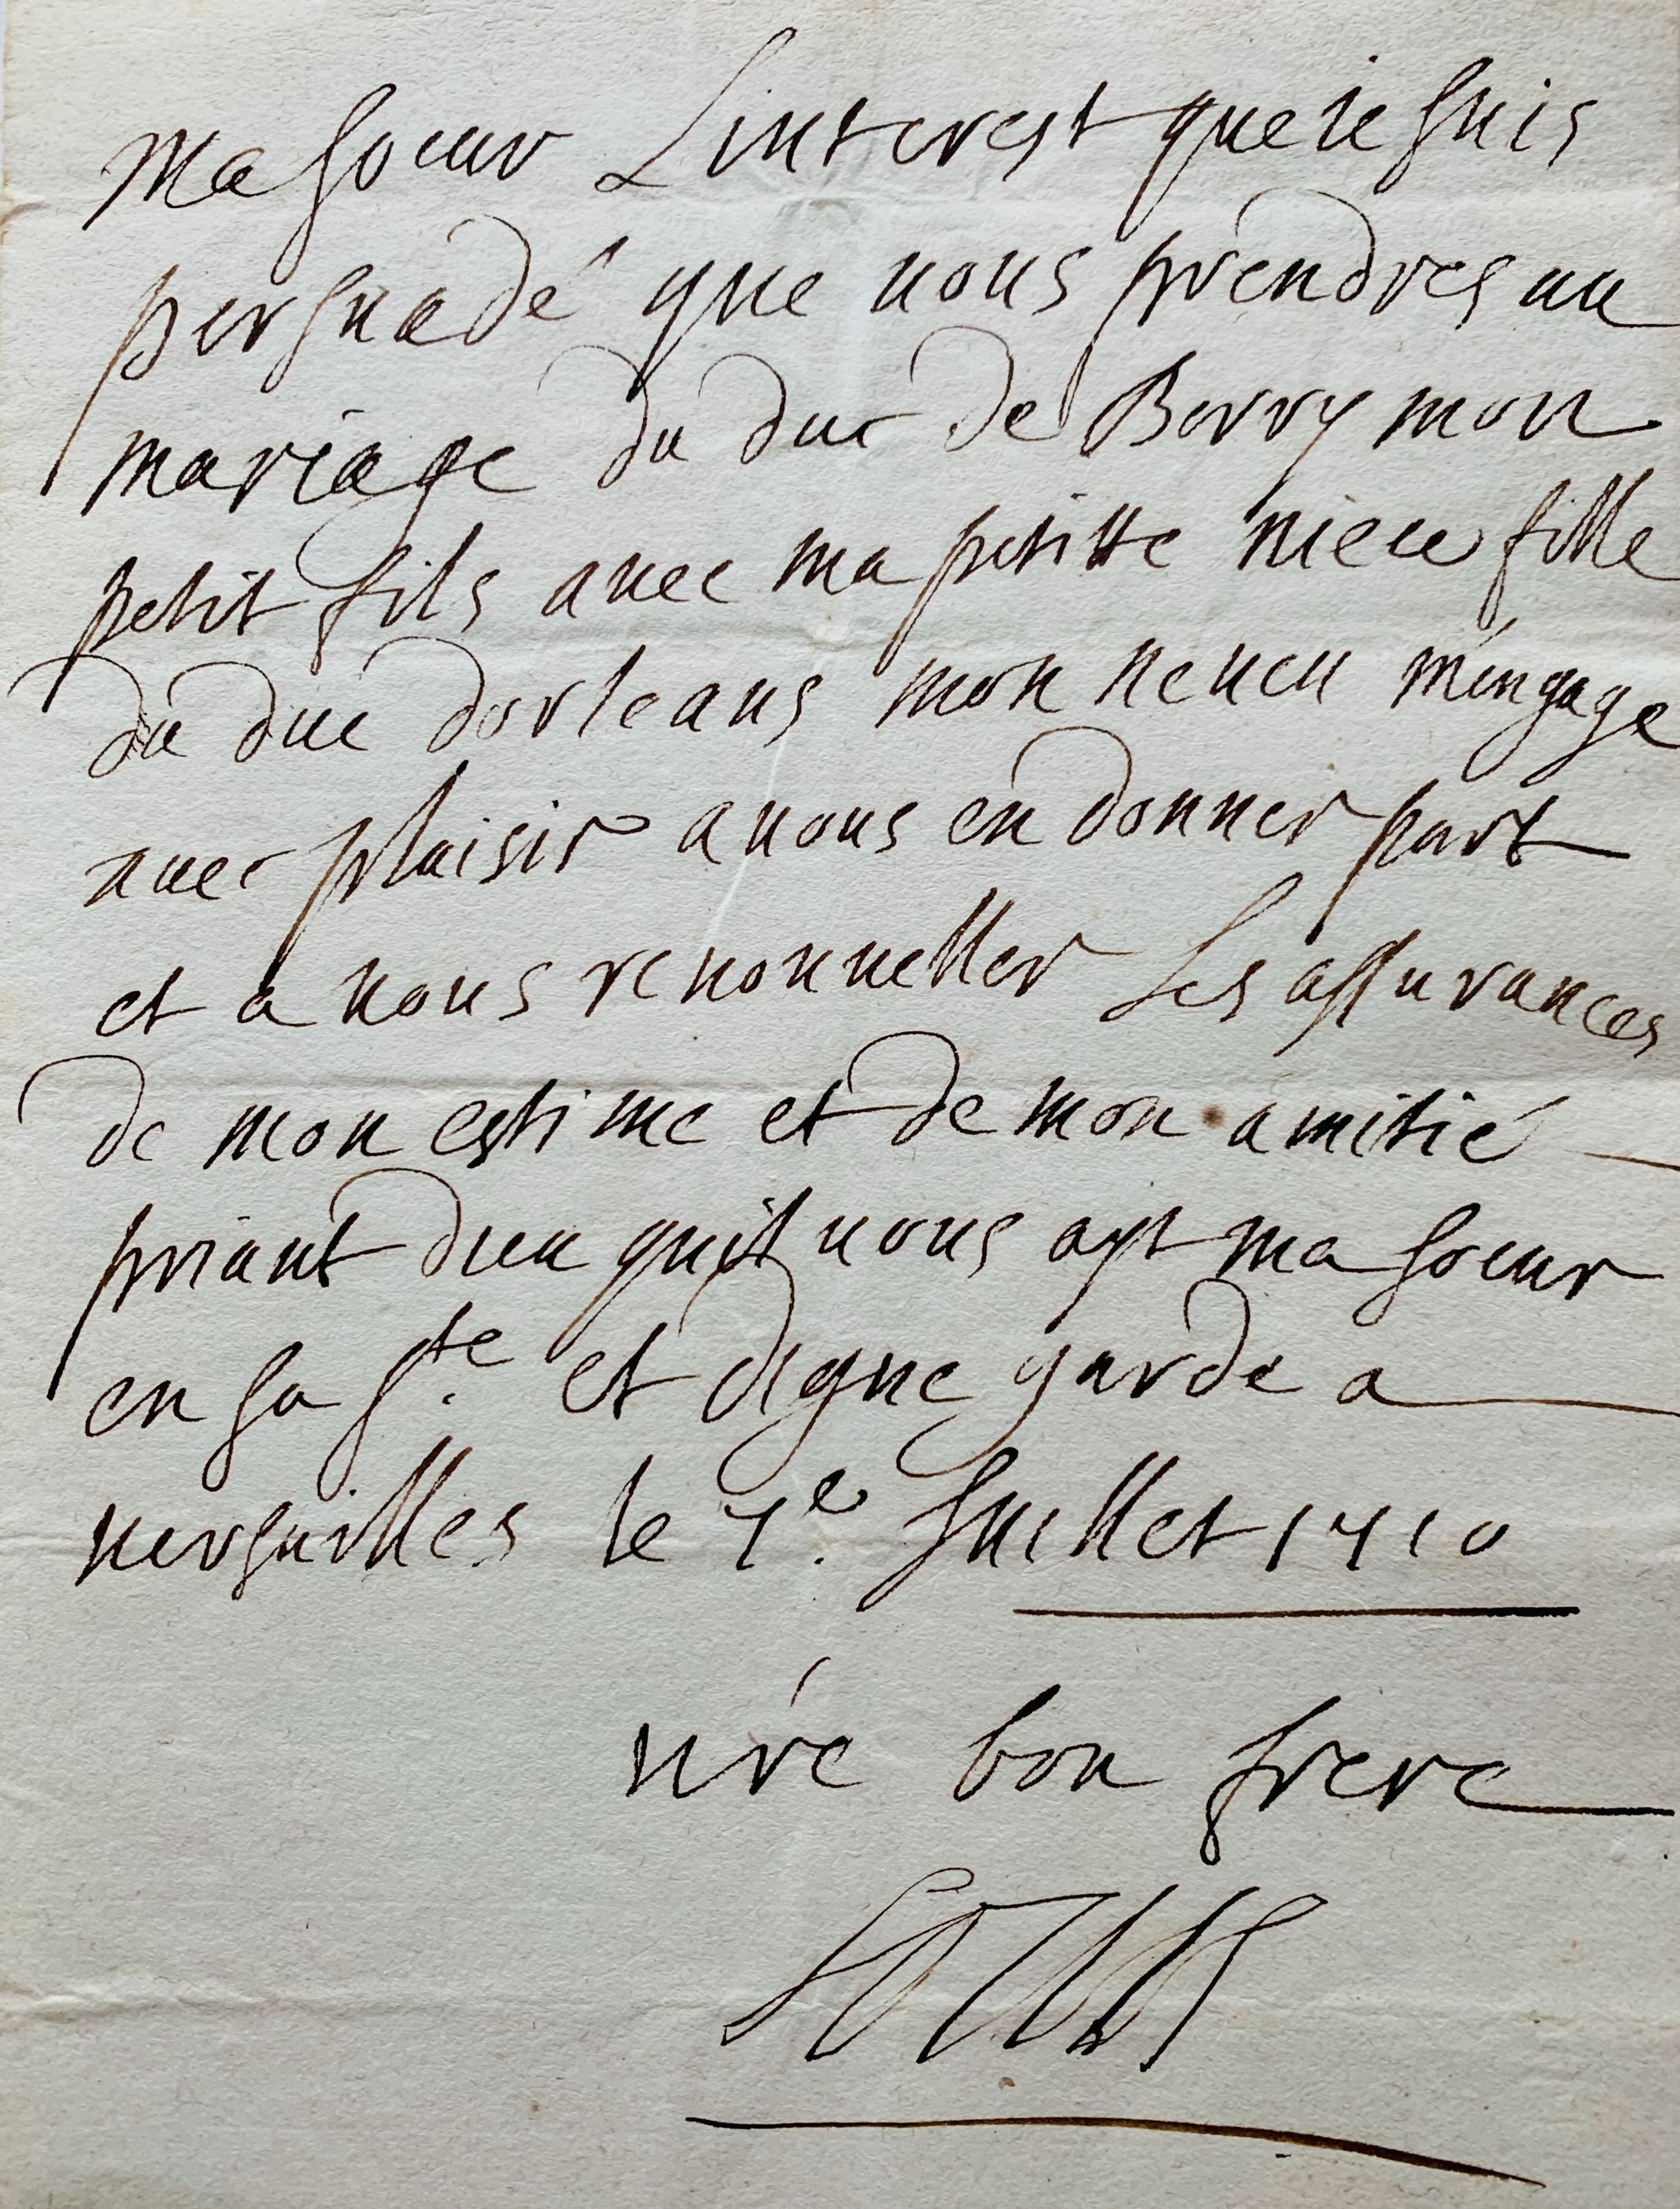 Ma soeur Linterest que ie suis
persuadé que uous prendres au
mariage du duc de Berry mon
petit fils auec ma petitte niece fille
du duc dorleans mon neueu m'engage
auec plaisir a uous en donner part
et a uous renouueller Les assurances
de mon estime et de mon amitié
priant dieu quil uous ayt ma soeur
en sa s.te et digne garde a
uersailles le 7e. Juillet 1710
ure bon frere
Louis